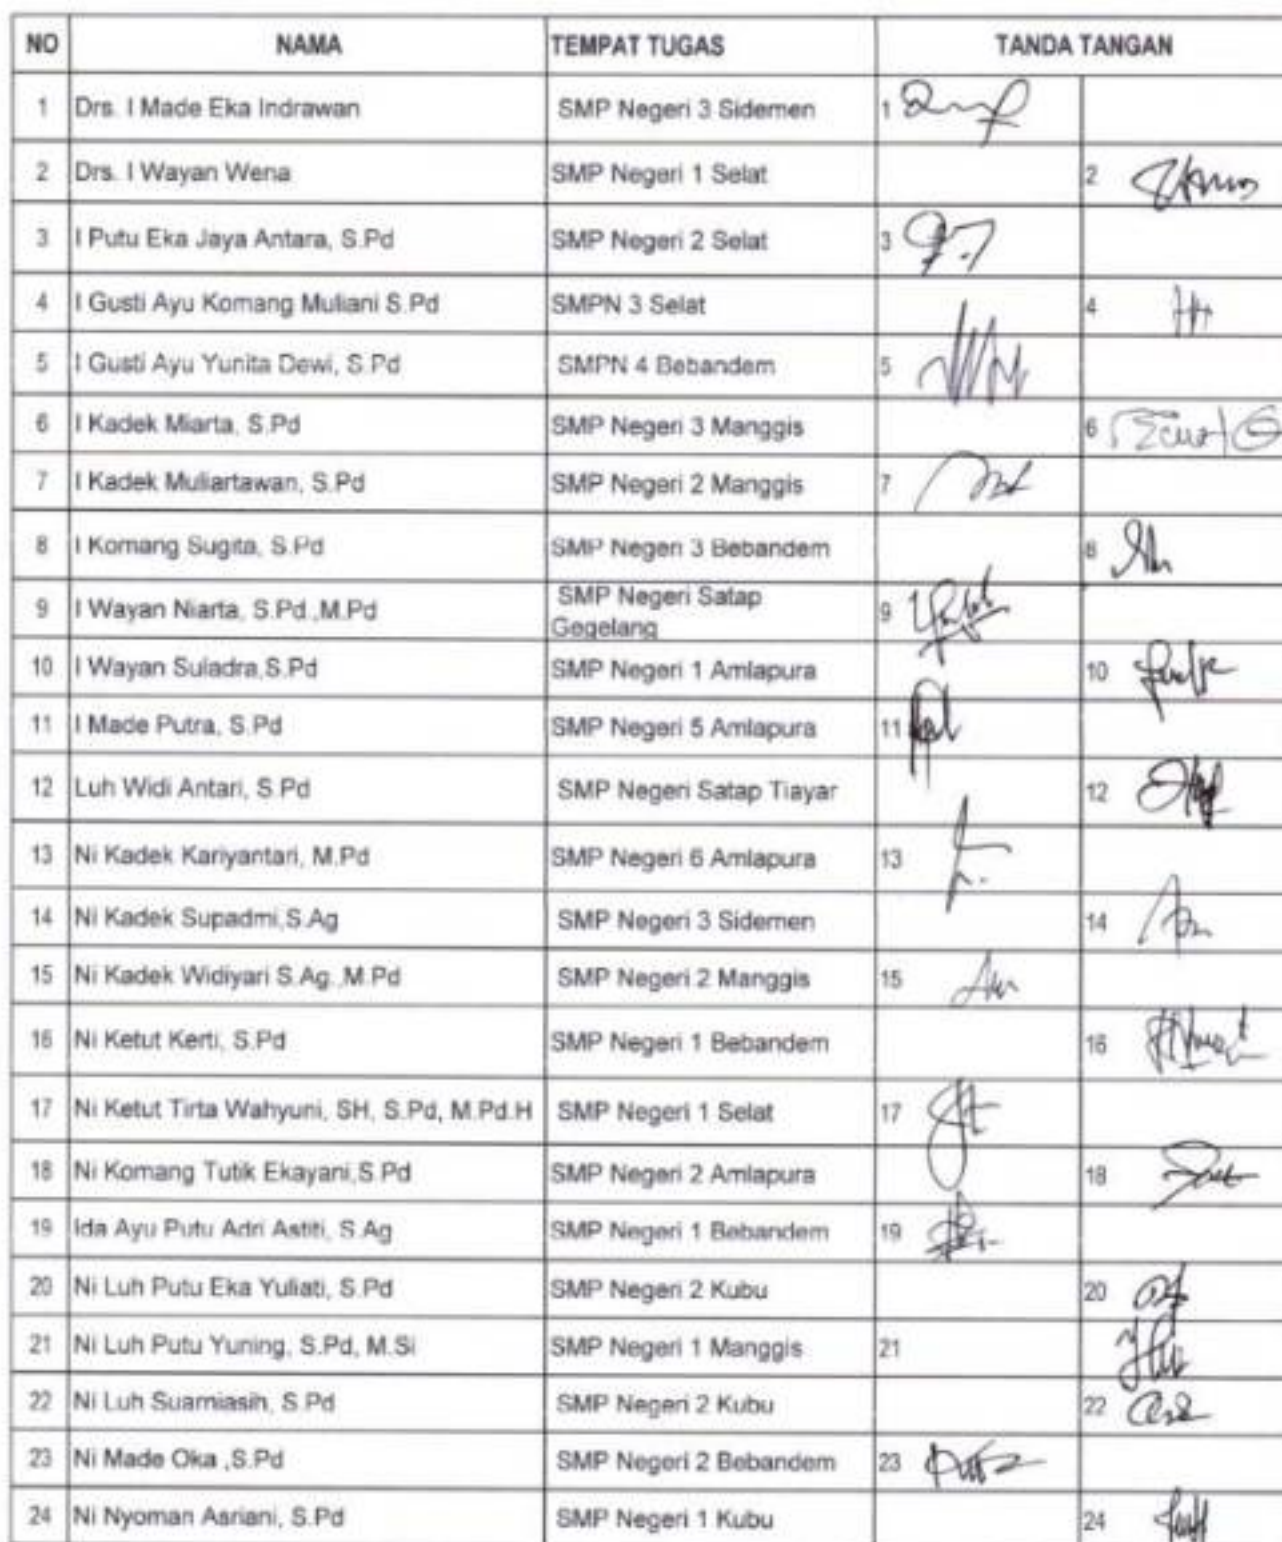 NO NAMA TEMPAT TUGAS TANDA TANGAN
1 Drs. I Made Eka Indrawan SMP Negeri 3 Sidemen 1
2 Drs. I Wayan Wena SMP Negeri 1 Selat 2
3 I Putu Eka Jaya Antara, S.Pd SMP Negeri 2 Selat 3
4 I Gusti Ayu Komang Muliani S.Pd SMPN 3 Selat 4
5 I Gusti Ayu Yunita Dewi, S.Pd SMPN 4 Bebandem 5
6 I Kadek Miarta, S.Pd SMP Negeri 3 Manggis 6
7 I Kadek Muliartawan, S.Pd SMP Negeri 2 Manggis 7
8 I Komang Sugita, S.Pd SMP Negeri 3 Bebandem 8
9 I Wayan Niarta, S.Pd.,M.Pd SMP Negeri Satap 9
Gegelang
10 I Wayan Suladra,S.Pd SMP Negeri 1 Amlapura 10
11 I Made Putra, S.Pd SMP Negeri 5 Amlapura 11
12 Luh Widi Antari, S.Pd SMP Negeri Satap Tiayar 12
13 Ni Kadek Kariyantari, M.Pd SMP Negeri 6 Amlapura 13
14 Ni Kadek Supadmi,S.Ag SMP Negeri 3 Sidemen 14
15 Ni Kadek Widiyari S.Ag.,M.Pd SMP Negeri 2 Manggis 15
16 Ni Ketut Kerti, S.Pd SMP Negeri 1 Bebandem 16
17 Ni Ketut Tirta Wahyuni, SH, S.Pd, M.Pd.H SMP Negeri 1 Selat 17
18 Ni Komang Tutik Ekayani,S.Pd SMP Negeri 2 Amlapura 18
19 Ida Ayu Putu Adri Astiti, S.Ag SMP Negeri 1 Bebandem 19
20 Ni Luh Putu Eka Yuliati, S.Pd SMP Negeri 2 Kubu 20
21 Ni Luh Putu Yuning, S.Pd, M.Si SMP Negeri 1 Manggis 21
22 Ni Luh Suarniasih, S.Pd SMP Negeri 2 Kubu 22
23 Ni Made Oka ,S.Pd SMP Negeri 2 Bebandem 23
24 Ni Nyoman Asriani, S.Pd SMP Negeri 1 Kubu 24